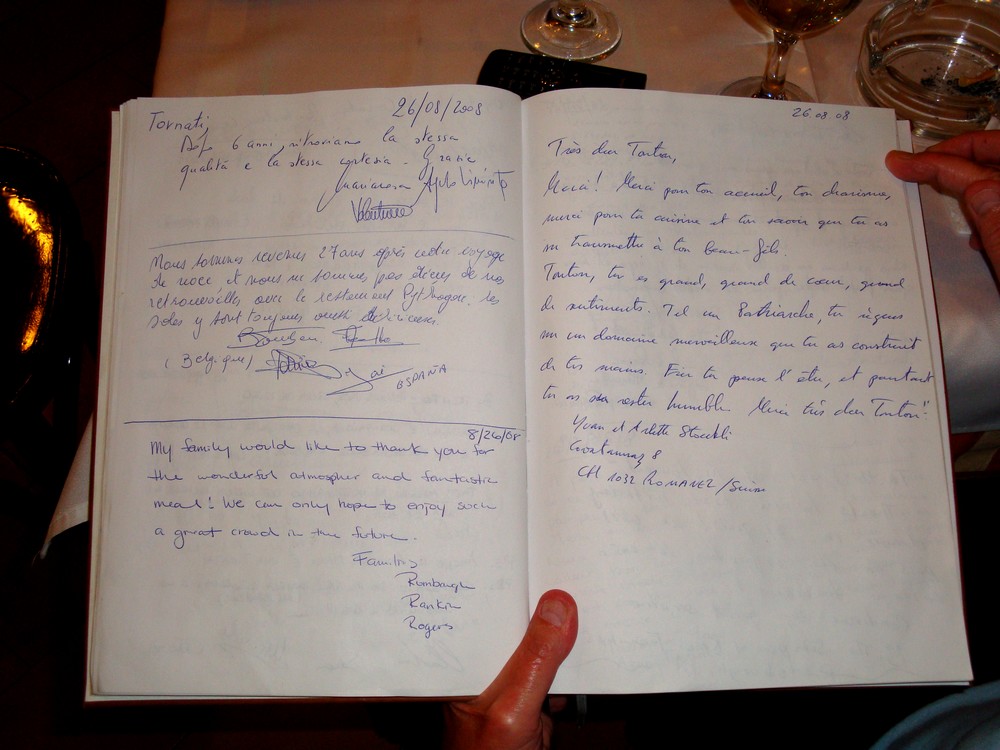 26/08/2008
Tornati,
6 anni, ritroviamo la stessa
qualità e la stessa cortesia - Grazie
Nous sommes revenus 27 ans après notre voyage
de noce et nous ne sommes pas déçus de nos
retrouvailles avec le restaurant Pythagore. Les
soles y sont toujours aussi délicieuses.
(Belgique)
ESPAÑA
8/26/08
My family would like to thank you for
the wonderful atmospher and fantastic
meal! We can only hope to enjoy such
a great crowd in the future.
Families
Rumbaugh
Rankin
Rogers
26.08.08
Très cher Tonton,
Merci! Merci pour ton accueil, ton charisme,
merci pour ta cuisine et ton savoir que tu as
su transmettre à ton beau-fils.
Tonton, tu es grand, grand de cœur, grand
de sentiments. Tel un Patriarche, tu règnes
sur un domaine merveilleux que tu as construit
de tes mains. Fier tu peux l'être, et pourtant
tu as su rester humble. Merci très cher "Tonton"
Yvan et Arlette Stoeckli
8
CH 1032 ROMANEL /Suisse